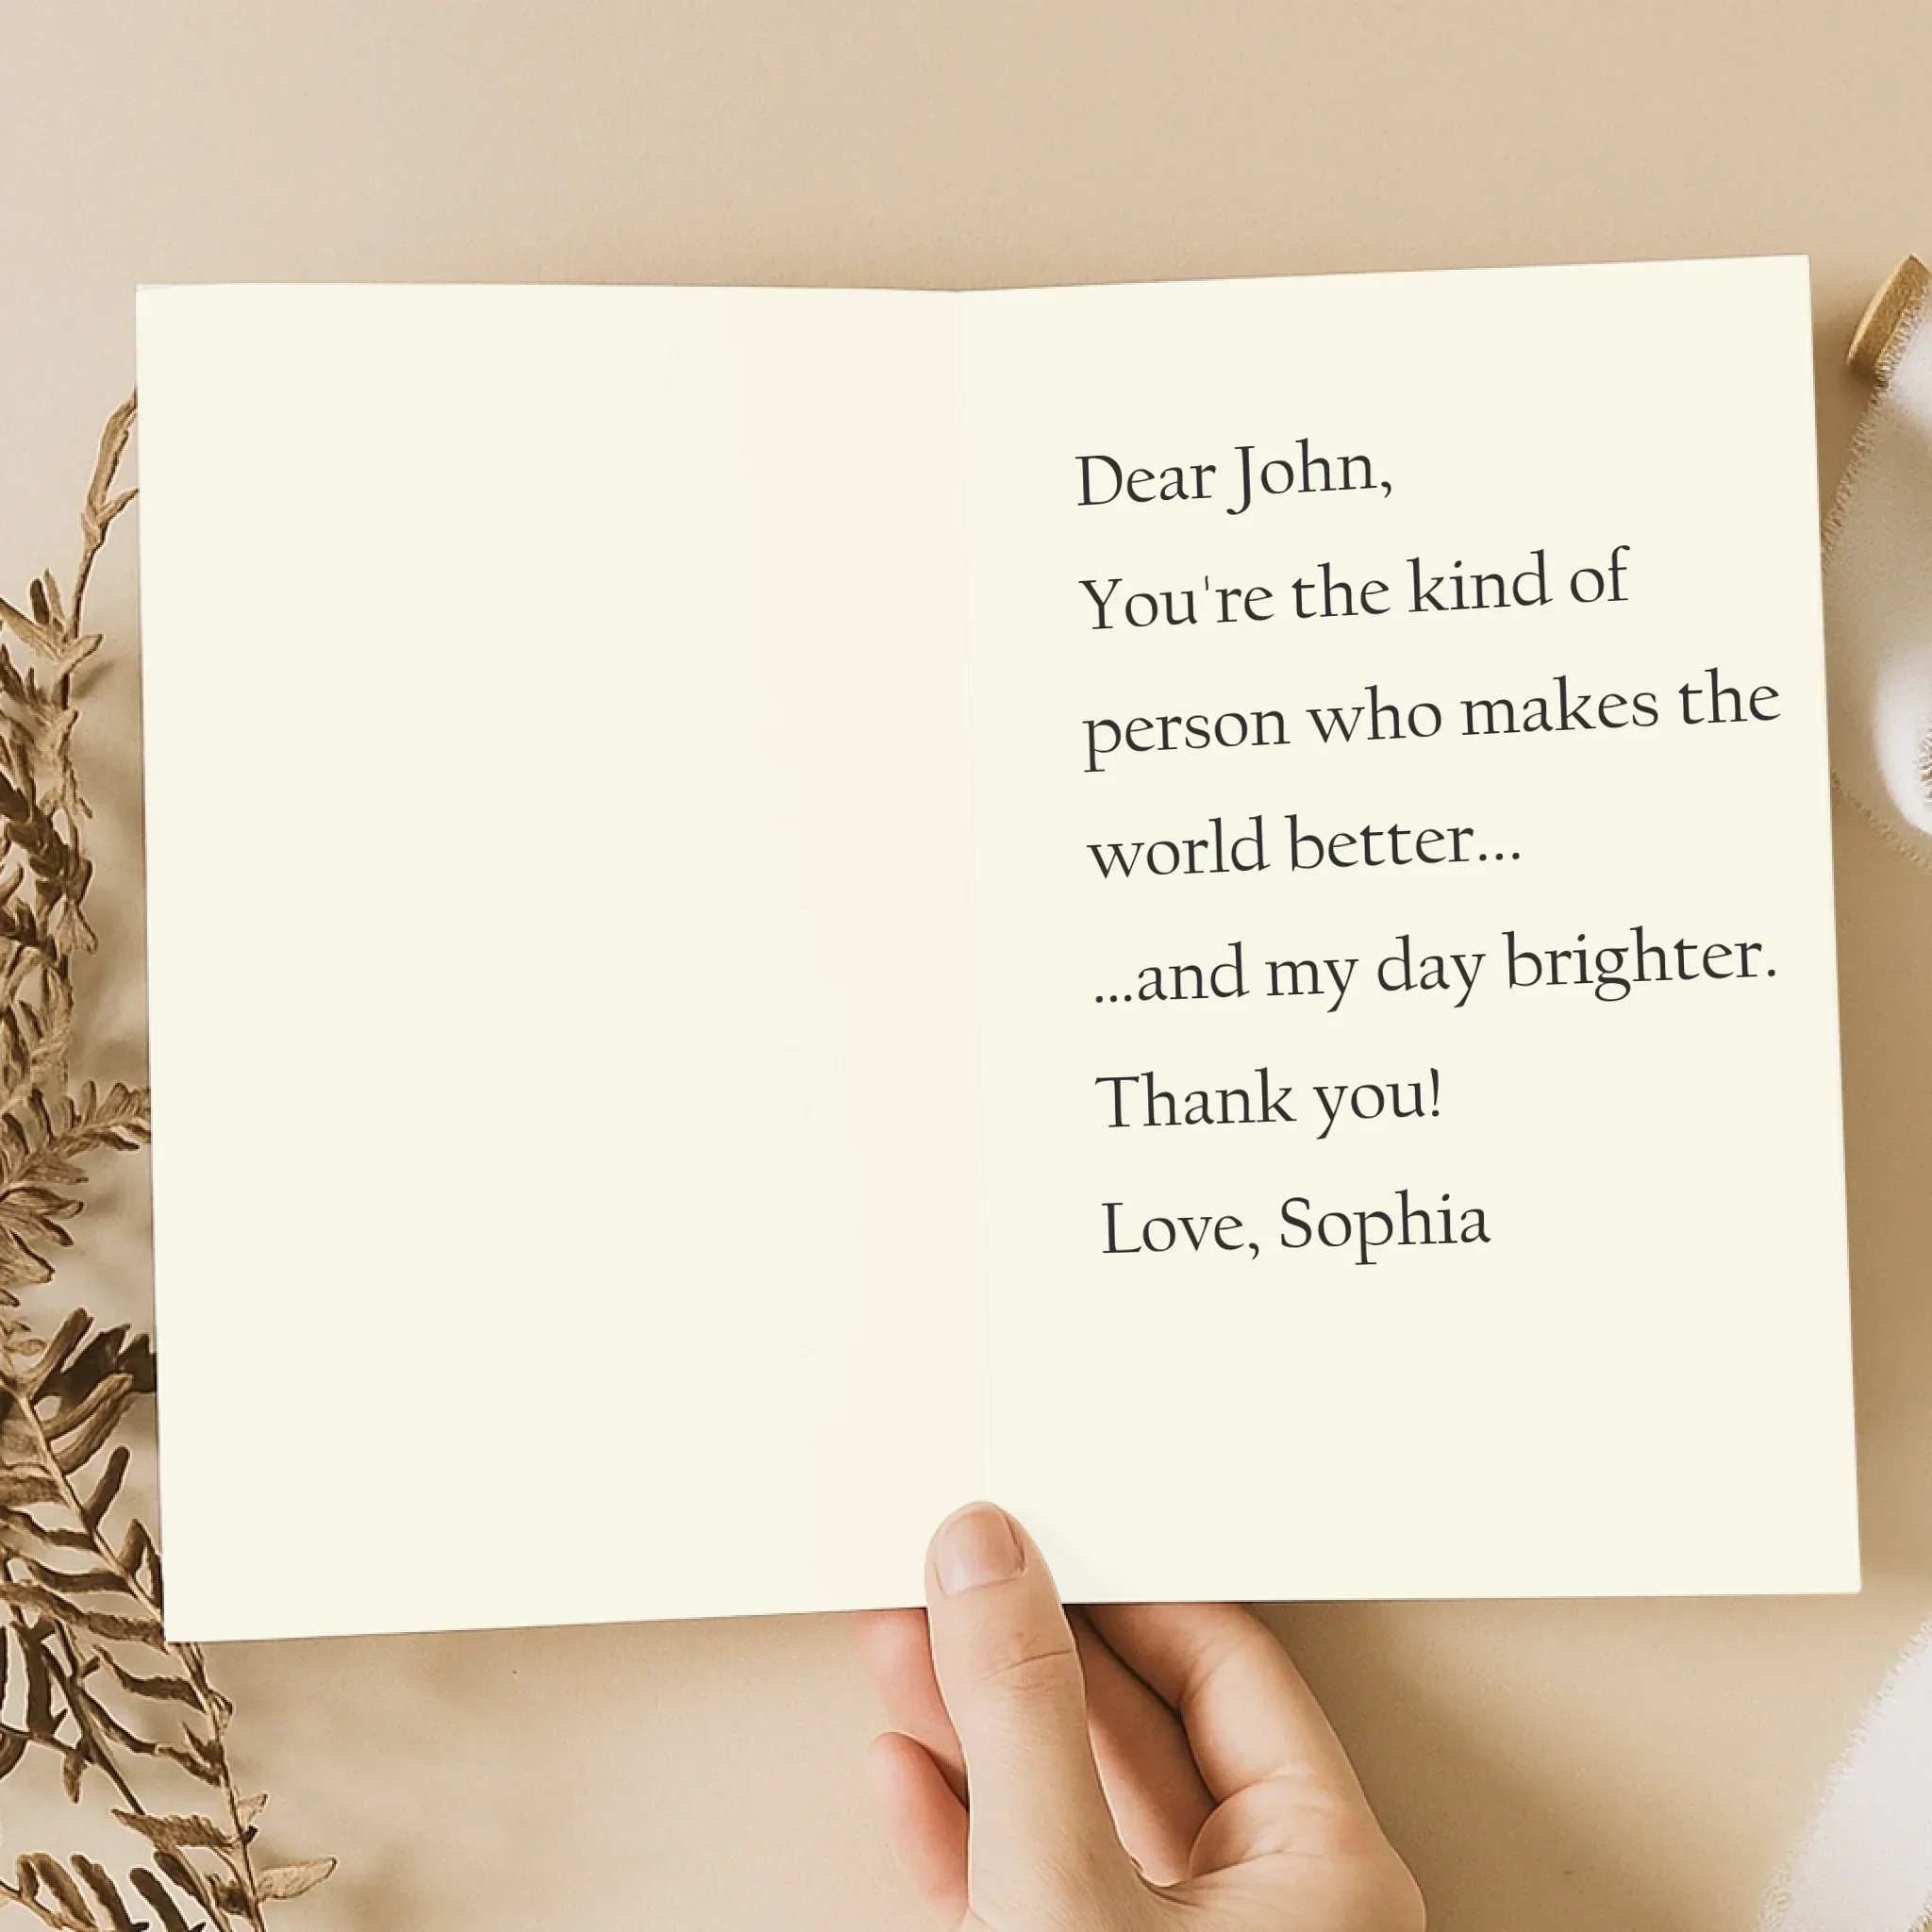 Dear John,
You're the kind of
person who makes the
world better...
...and my day brighter.
Thank you!
Love, Sophia